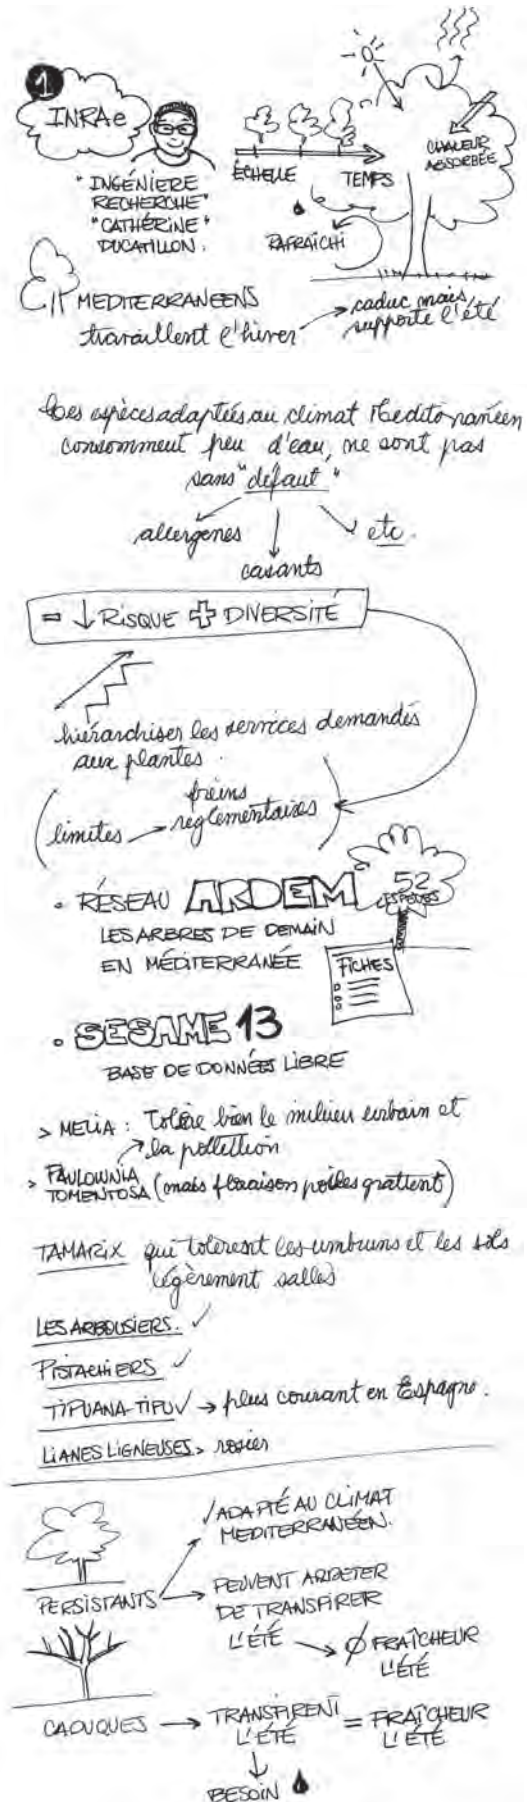 1
INRAe
"INGÉNIERE
RECHERCHE"
"CATHÉRINE"
DUCATILLON.
ÉCHELLE
TEMPS
CHALEUR
ABSORBÉE
RAFRAÎCHI
MEDITERRANEENS
travaillent l'hiver
caduc mais,
supporte l'été
Les espèces adaptées au climat Meditérranéen
consomment peu d'eau, ne sont pas
sans "défaut"
allergenes
etc.
casants
= ↓ RISQUE + DIVERSITÉ
hiérarchiser les services demandés
aux plantes.
(limites → freins
réglementaires)
• RÉSEAU ARDEM
52
ESPECES
LES ARBRES DE DEMAIN
EN MÉDITERRANÉE
FICHES
• SESAME 13
BASE DE DONNÉES LIBRE
> MELIA : Tolère bien le milieu urbain et
la pollution
> PAULOWNIA
TOMENTOSA (mais floraison poiles grattent)
TAMARIX qui tolerent les embruns et les sols
légèrement salles
LES ARBOUSIERS. ✓
PISTACHIERS ✓
TIPUANA-TIPU ✓ → plus courant en Espagne.
LIANES LIGNEUSES > rosier
✓ ADAPTÉ AU CLIMAT
MEDITERRANÉEN.
PERSISTANTS → PEUVENT ARRETER
DE TRANSPIRER
L'ÉTÉ → Ø FRAÎCHEUR
L'ÉTÉ
CADUQUES → TRANSPIRENT
L'ÉTÉ = FRAÎCHEUR
L'ÉTÉ
BESOIN